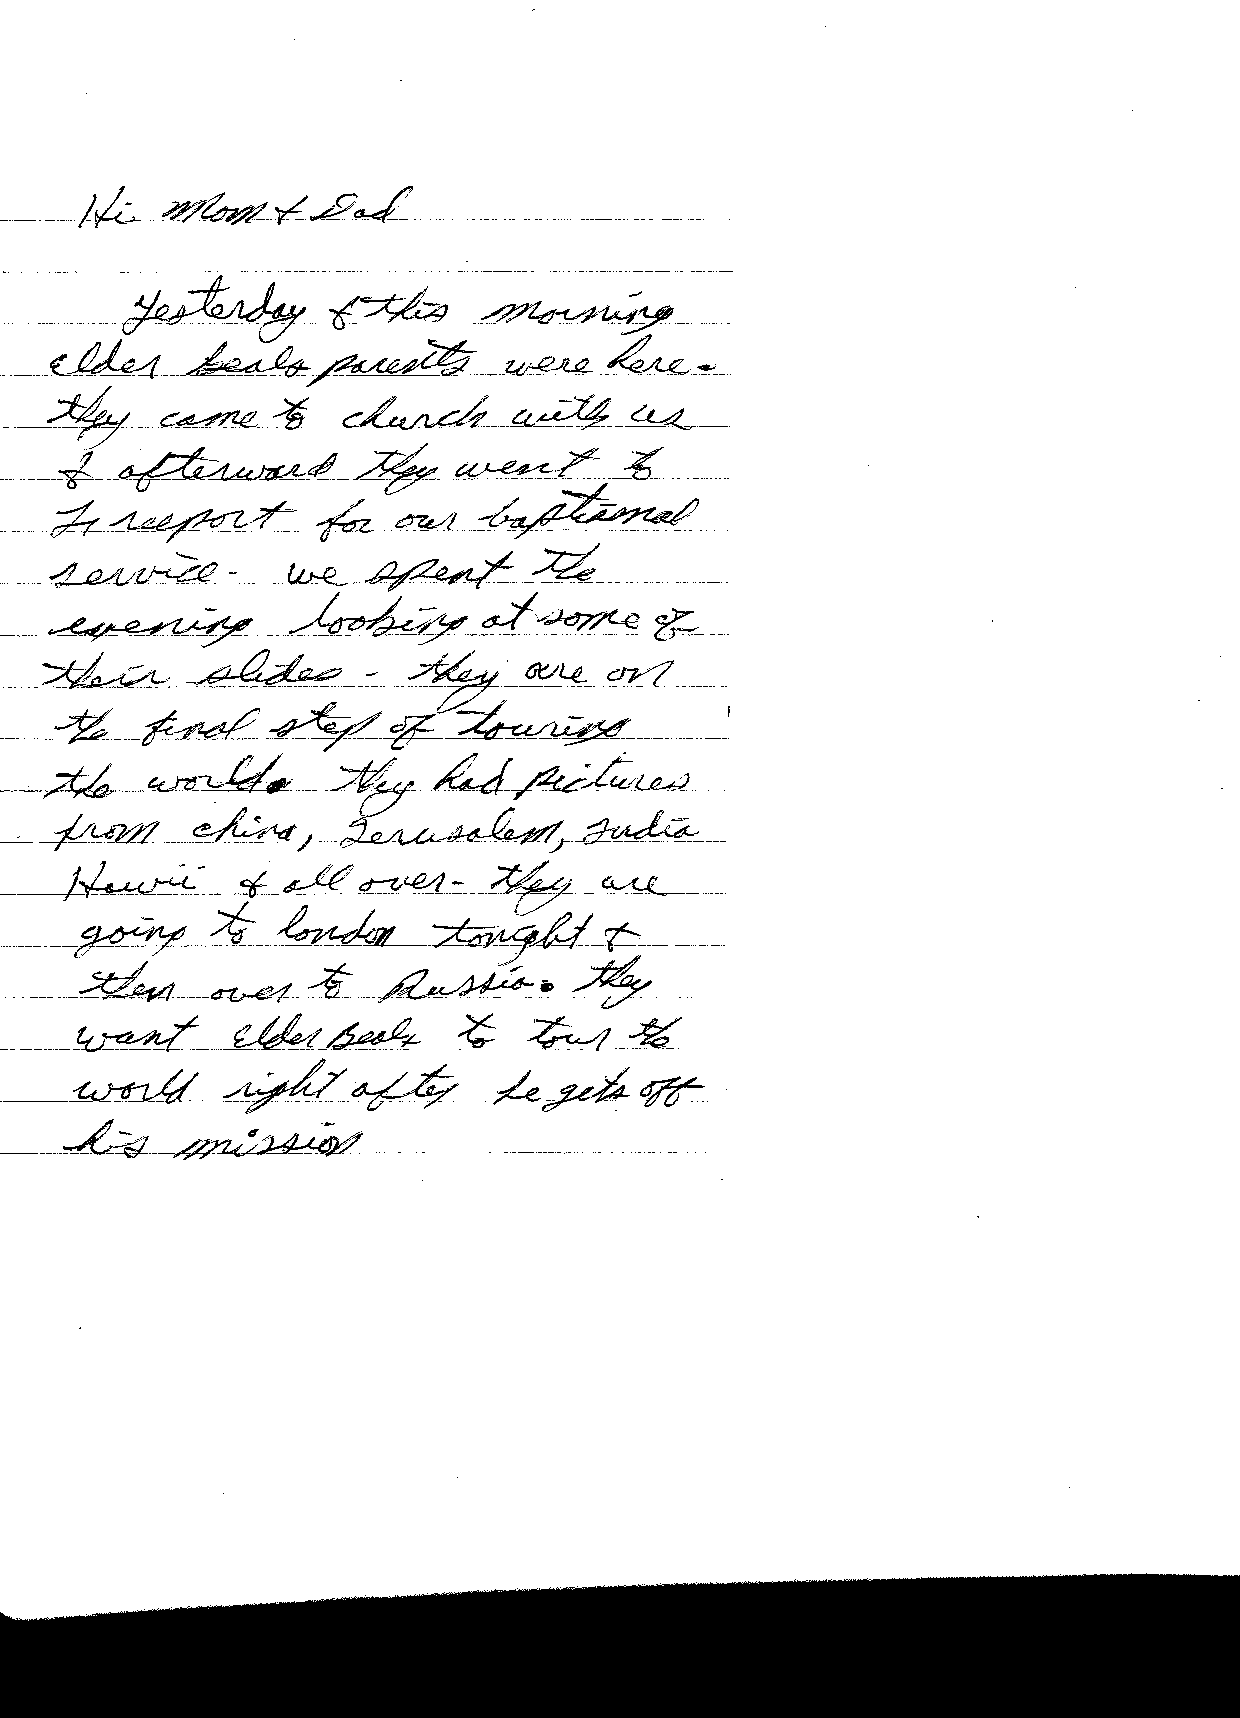 Hi Mom & Dad
Yesterday & this morning
elder beals parents were here.
they came to church with us
& afterward they went to
Freeport for our baptismal
service - we spent the
evening looking at some of
their slides - they are on
the final step of touring
the world. they had pictures
from china, Jerusalem, India
Hawii & all over - they are
going to london tonght &
then over to Russia. they
want elder Beals to tour the
world right after he gets off
his mission